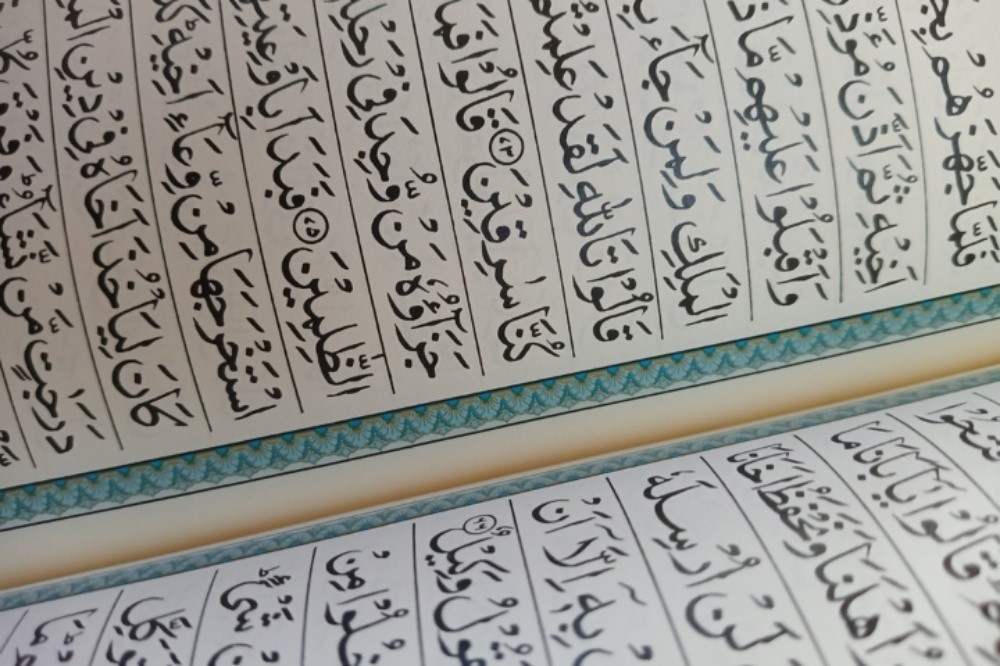 فَلَمَّا جَهَّزَهُمْ بِجَ
اَخِيْهِ ثُمَّ اَذَّنَ مُؤَذِّنٌ
وَاَقْبَلُوْا عَلَيْهِمْ مَّاذَا
الْمَلِكِ وَلِمَنْ جَآءَ بِ
قَالُوْا تَاللّٰهِ لَقَدْ عَلِمْتُمْ
كُنَّا سٰرِقِيْنَ ﴿۷۳﴾ قَالُوْا فَمَا
جَزَآؤُهٗ مَنْ وُّجِدَ فِيْ رَحْلِهٖ
الظّٰلِمِيْنَ ﴿۷۵﴾ فَبَدَاَ بِاَوْعِيَتِ
اسْتَخْرَجَهَا مِنْ وِّعَآءِ اَخِيْهِ ؕ كَ
كَانَ لِيَاْخُذَ اَخَاهُ فِيْ دِيْنِ الْ
دَرَجٰتٍ مَّنْ نَّشَآءُ ؕ وَفَوْقَ كُ
قَالُوْا يٰۤاَبَانَا مَا
اَهْلَنَا وَنَحْفَظُ اَخَانَا
لَنْ اُرْسِلَهٗ
بِهٖۤ اِلَّاۤ اَنْ
نَقُوْلُ وَكِيْلٌ ﴿۶۶﴾
خُلُوْا مِنْ
شَيْءٍ ؕ